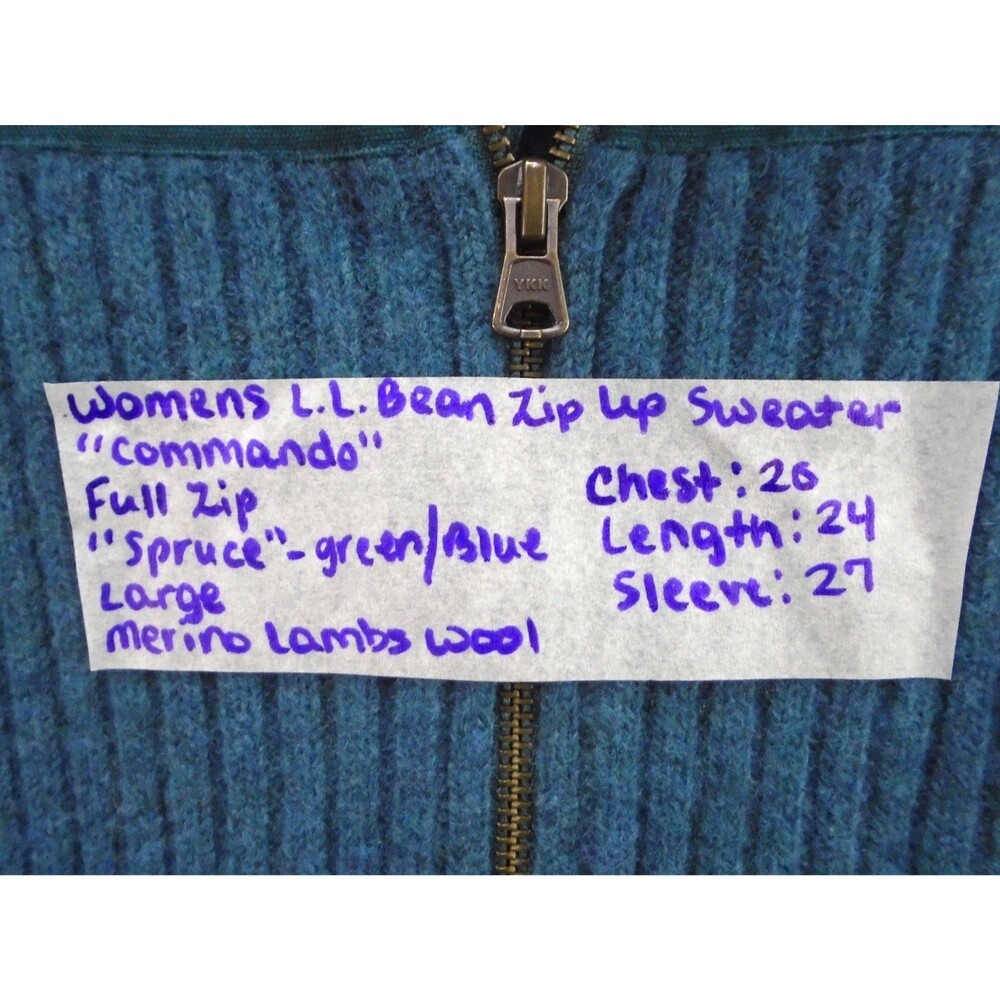 YKK
Womens L.L. Bean Zip Up Sweater
"Commando"
Full Zip
"Spruce" - green/Blue
Large
Merino Lambs Wool
Chest: 26
Length: 24
Sleeve: 27